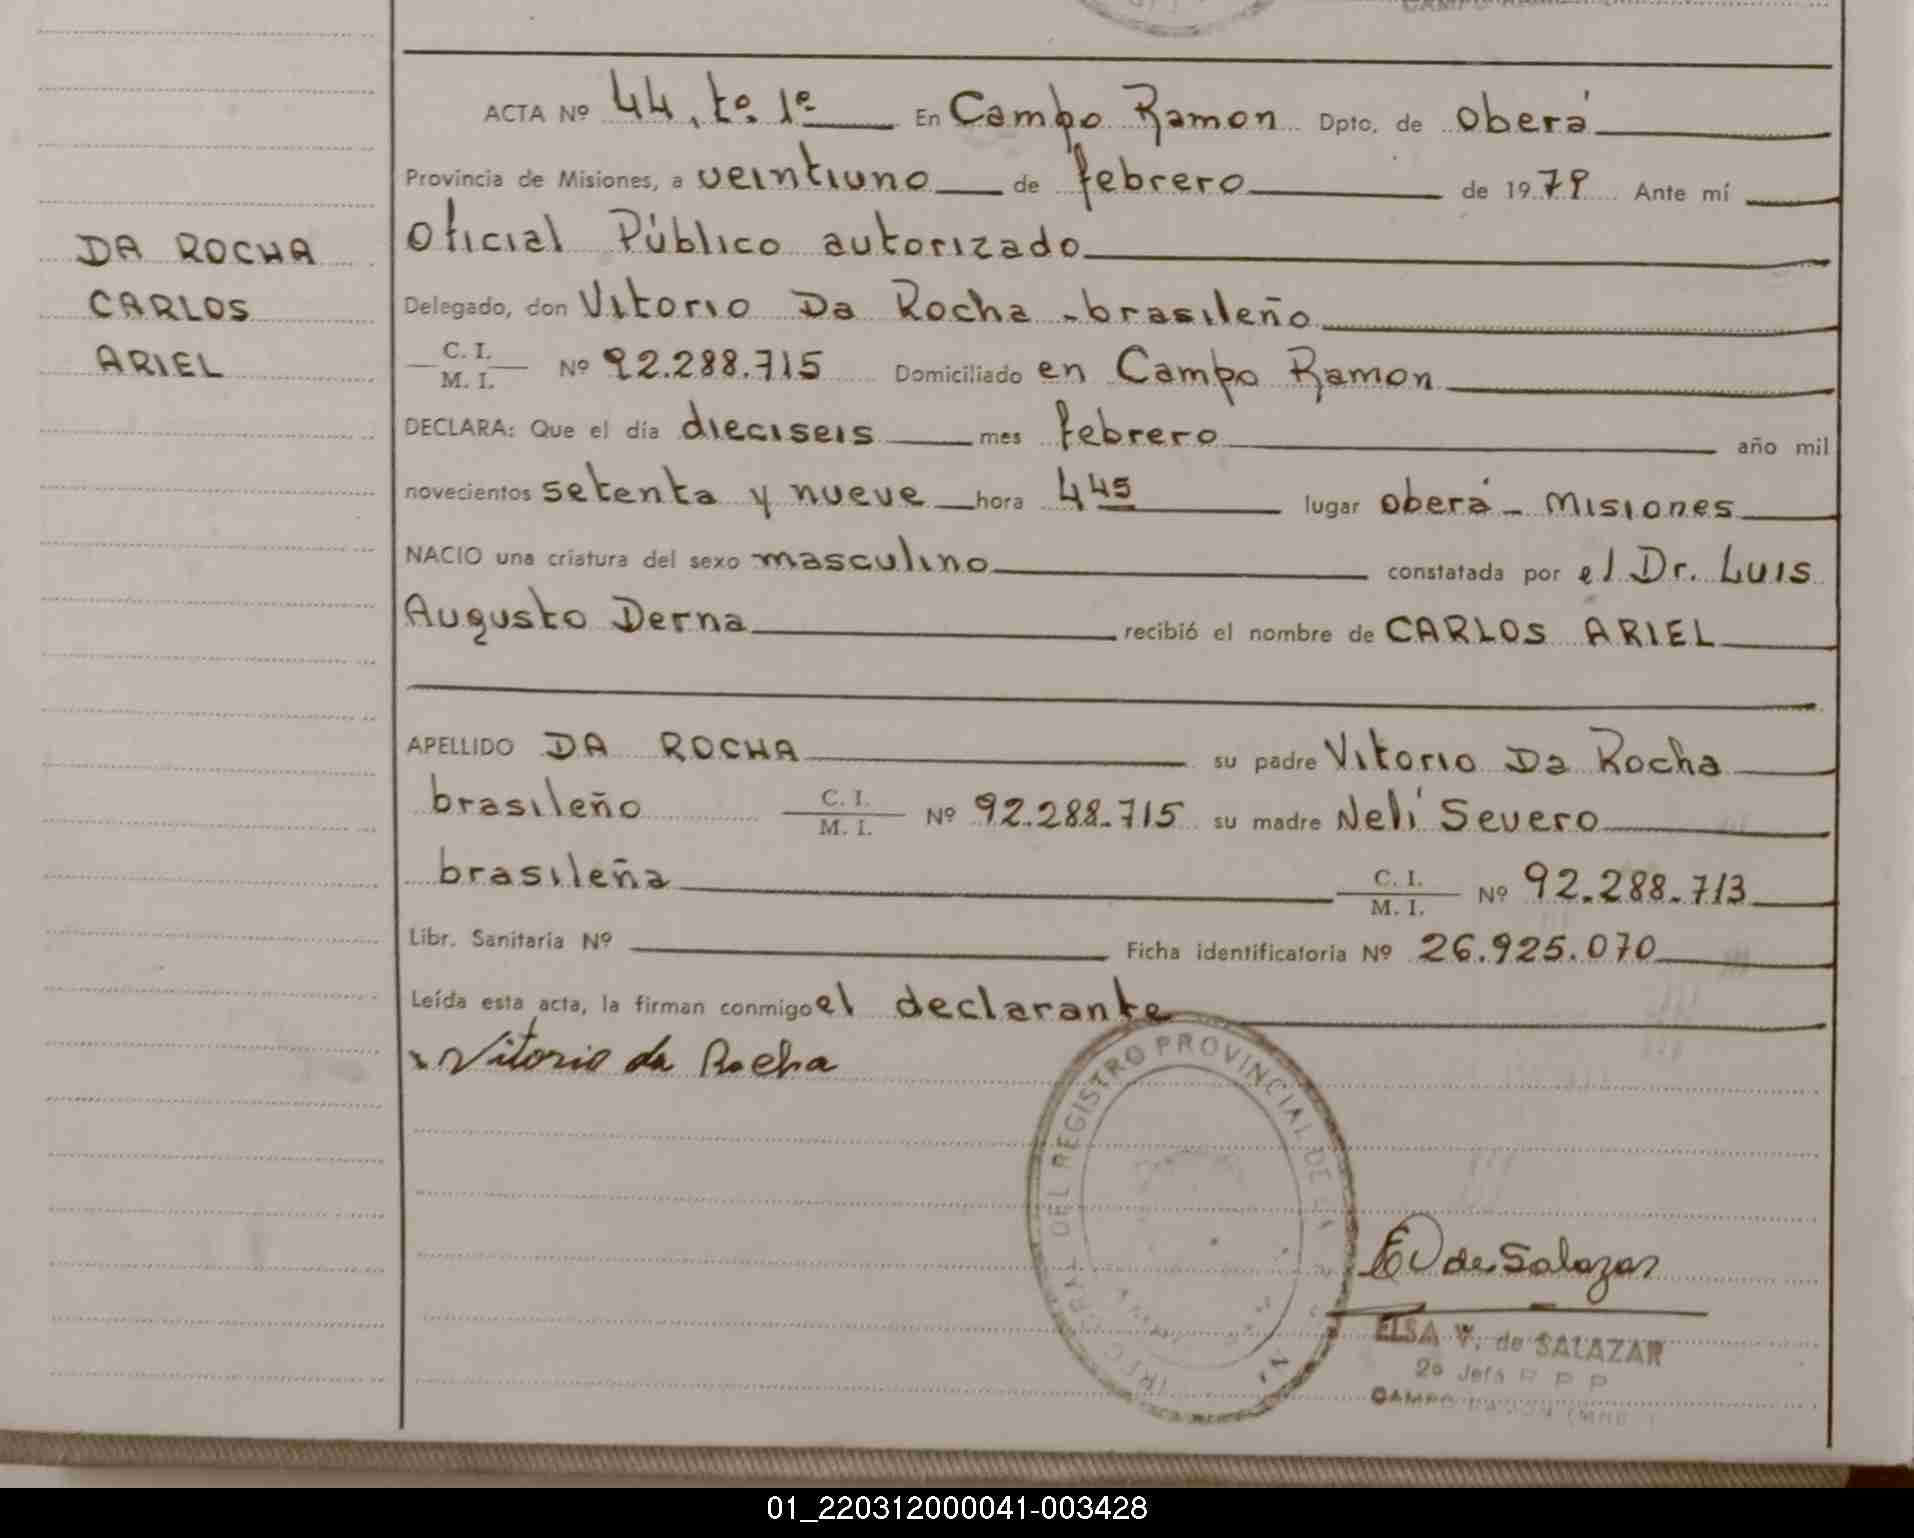 ACTA Nº 44, tº. 1º En Campo Ramon Dpto. de Oberá
Provincia de Misiones, a veintiuno de febrero de 1979 Ante mí
Oficial Público autorizado
DA ROCHA
Delegado, don Vitorio Da Rocha - brasileño
CARLOS
C. I.
M. I. Nº 92.288.715 Domiciliado en Campo Ramon
ARIEL
DECLARA: Que el día dieciseis mes febrero año mil
novecientos setenta y nueve hora 4 45 lugar Oberá - Misiones
NACIO una criatura del sexo masculino constatada por el Dr. Luis
Augusto Derna recibió el nombre de CARLOS ARIEL
APELLIDO DA ROCHA su padre Vitorio Da Rocha
brasileño C. I.
M. I. Nº 92.288.715 su madre Nelí Severo
brasileña C. I.
M. I. Nº 92.288.713
Libr. Sanitaria Nº Ficha identificatoria Nº 26.925.070
Leída esta acta, la firman conmigo el declarante
x Vitorio da Rocha
DEL REGISTRO PROVINCIAL DE
EV de Salazar
ELSA V. de SALAZAR
2º Jefa R P P
CAMPO RAMON
01_220312000041-003428